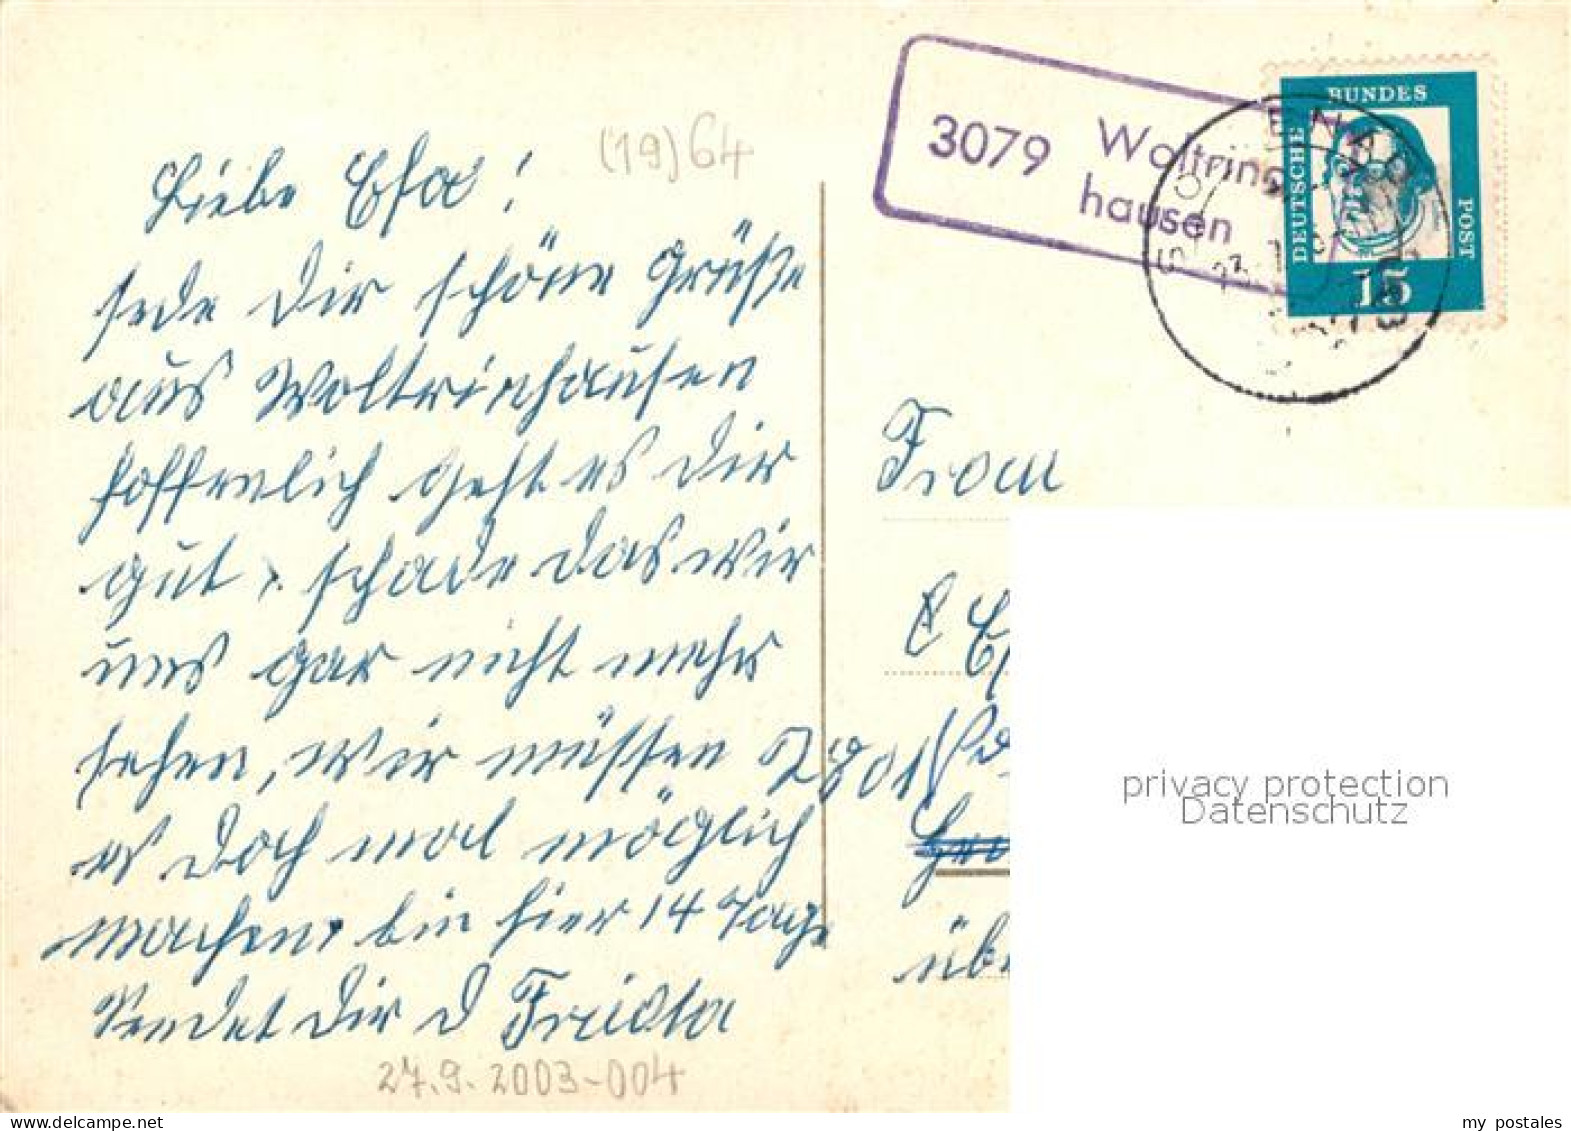 (19)64
Liebe Efa!
sede Dir schöne Grüße
aus Woltrinhausen
hoffenlich geht es Dir
gut, schade das wir
uns gar nicht mehr
sehen, wir müssen
es doch mal möglich
machen, bin hier 14 Tage
Sendet Dir d Friedla
27.9.2003-004
3079 Woltring
hausen
DEUTSCHE BUNDES POST
15
Frau
2801
privacy protection
Datenschutz
my postales